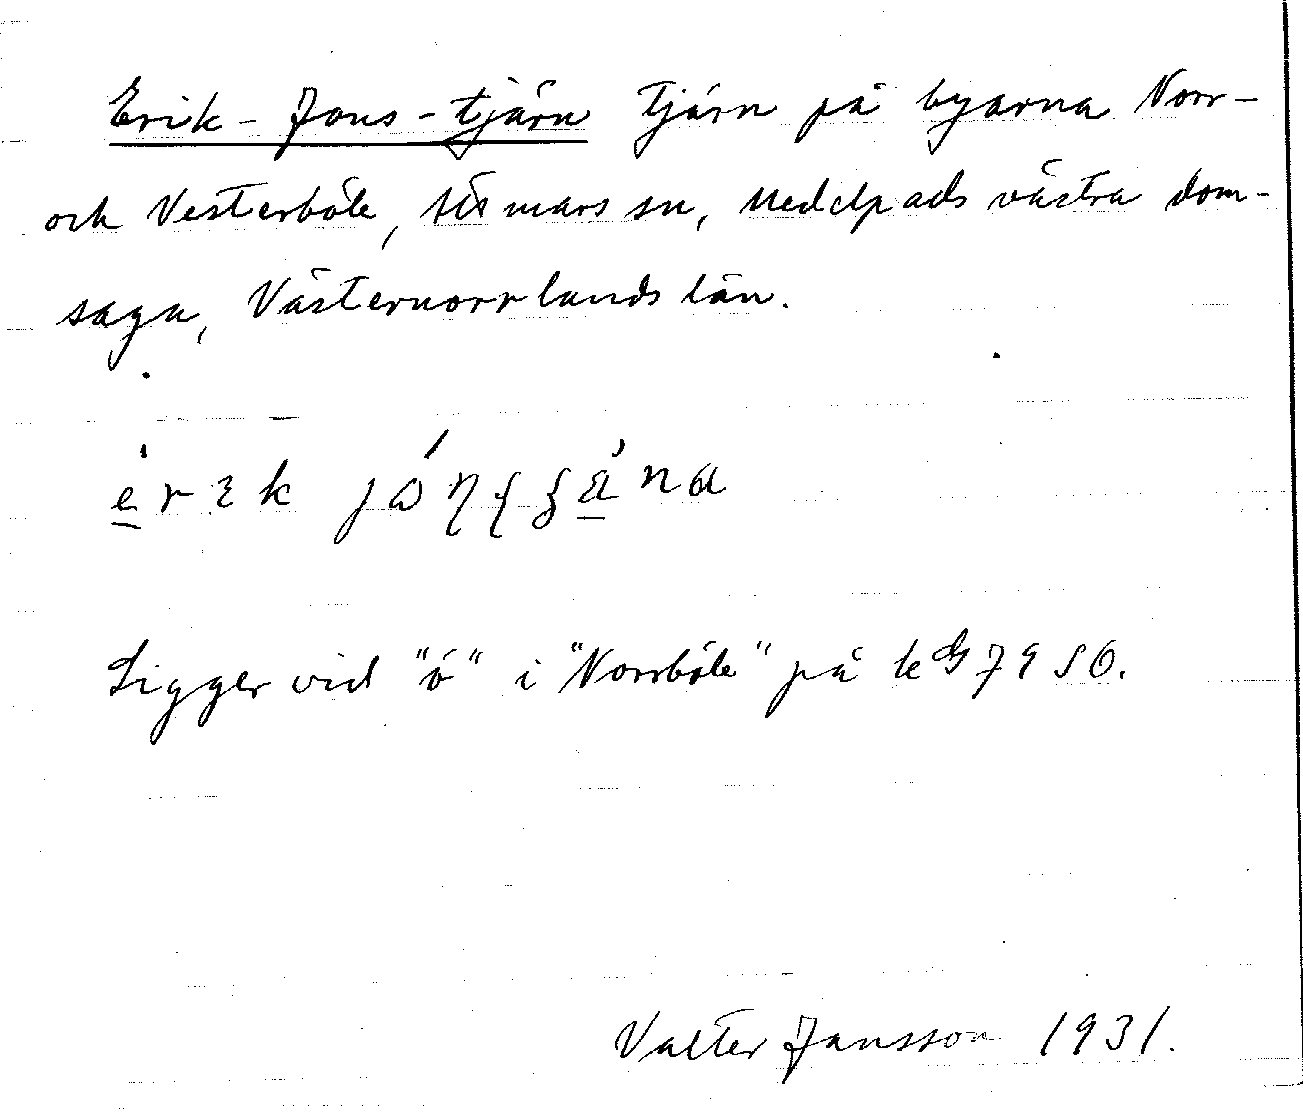 Erik-Jons-tjärn Tjärn på byarna Norr-
och Vesterböle, mars sn, Medelpads västra dom-
saga, Västernorrlands län.
Ligger vid "ö" i "Norrböle" på kG 7950.
Valter Jansson 1931.